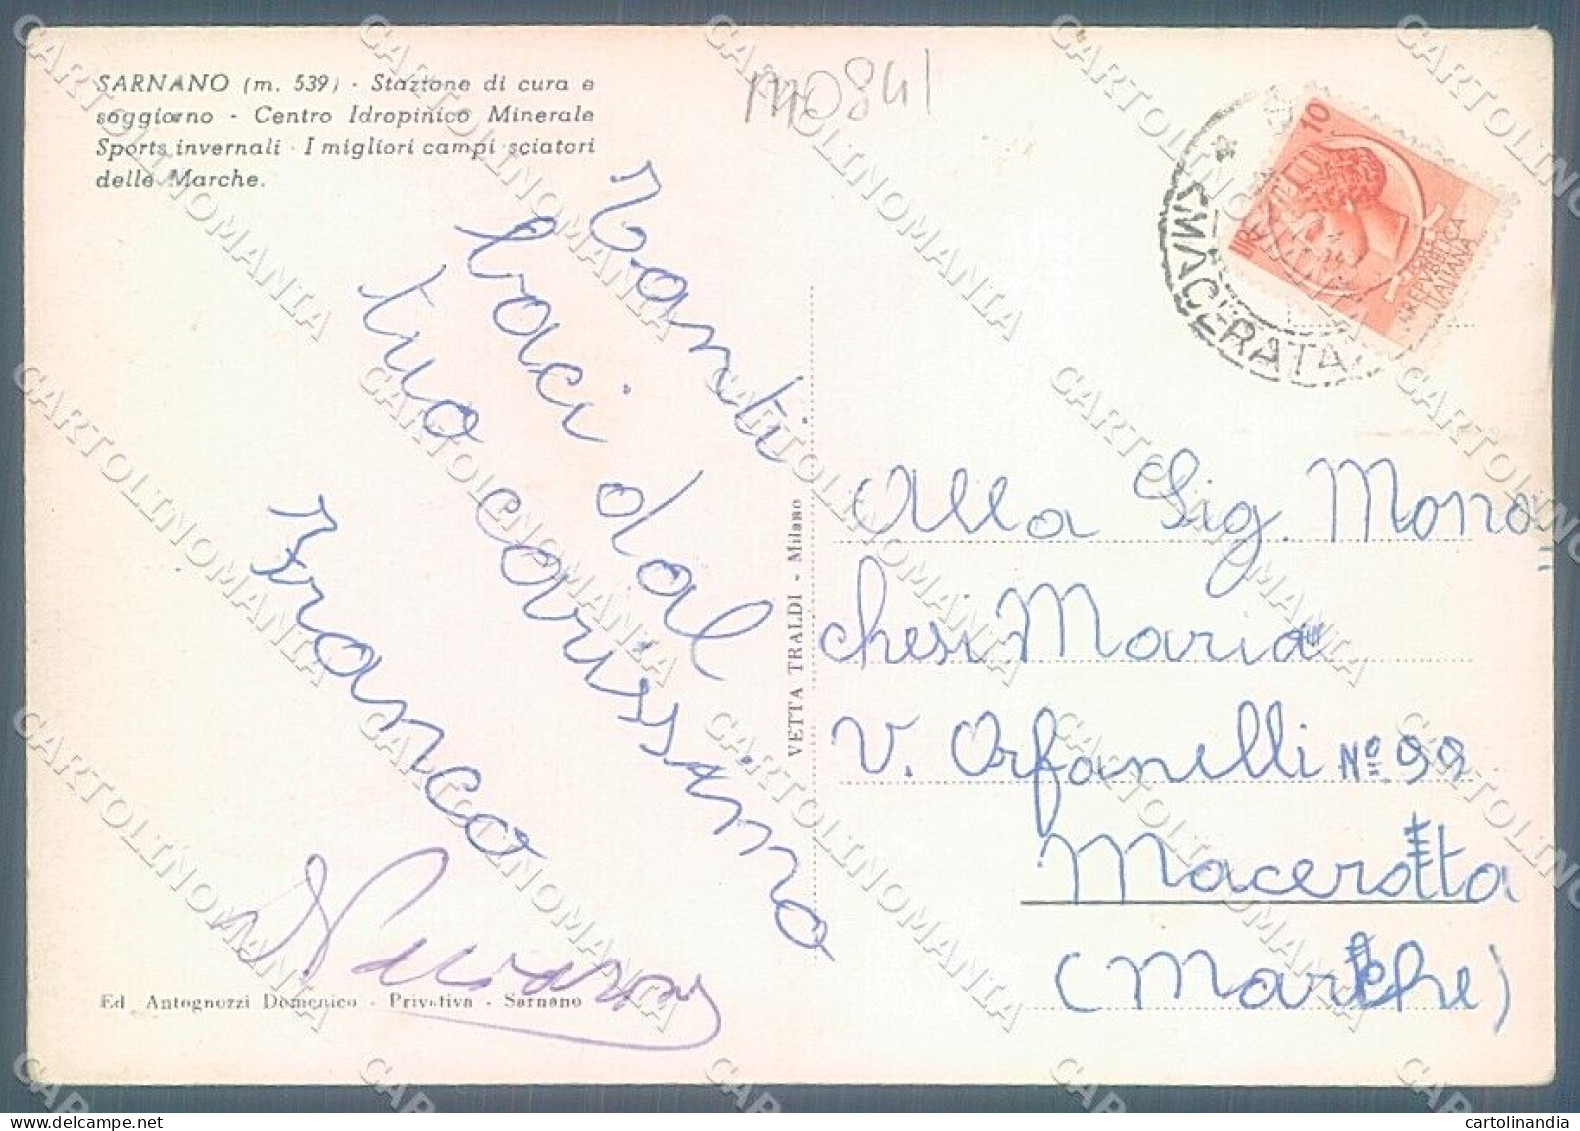 SARNANO (m. 539) - Stazione di cura e
soggiorno - Centro Idropinico Minerale
Sports invernali - I migliori campi sciatori
delle Marche.
m0841
10
LIRE
POSTE
REPVBBLICA
ITALIANA
MACERATA
Tanti
baci dal
tuo carissimo
Franco
VETTA TRALDI - Milano
Alla Sig. Mona
chesi Maria
V. Orfanelli Nº 99
Maceratta
(Marche)
Ed. Antognozzi Domenico - Privativa - Sarnano
CARTOLINOMANIA
cartolinandia